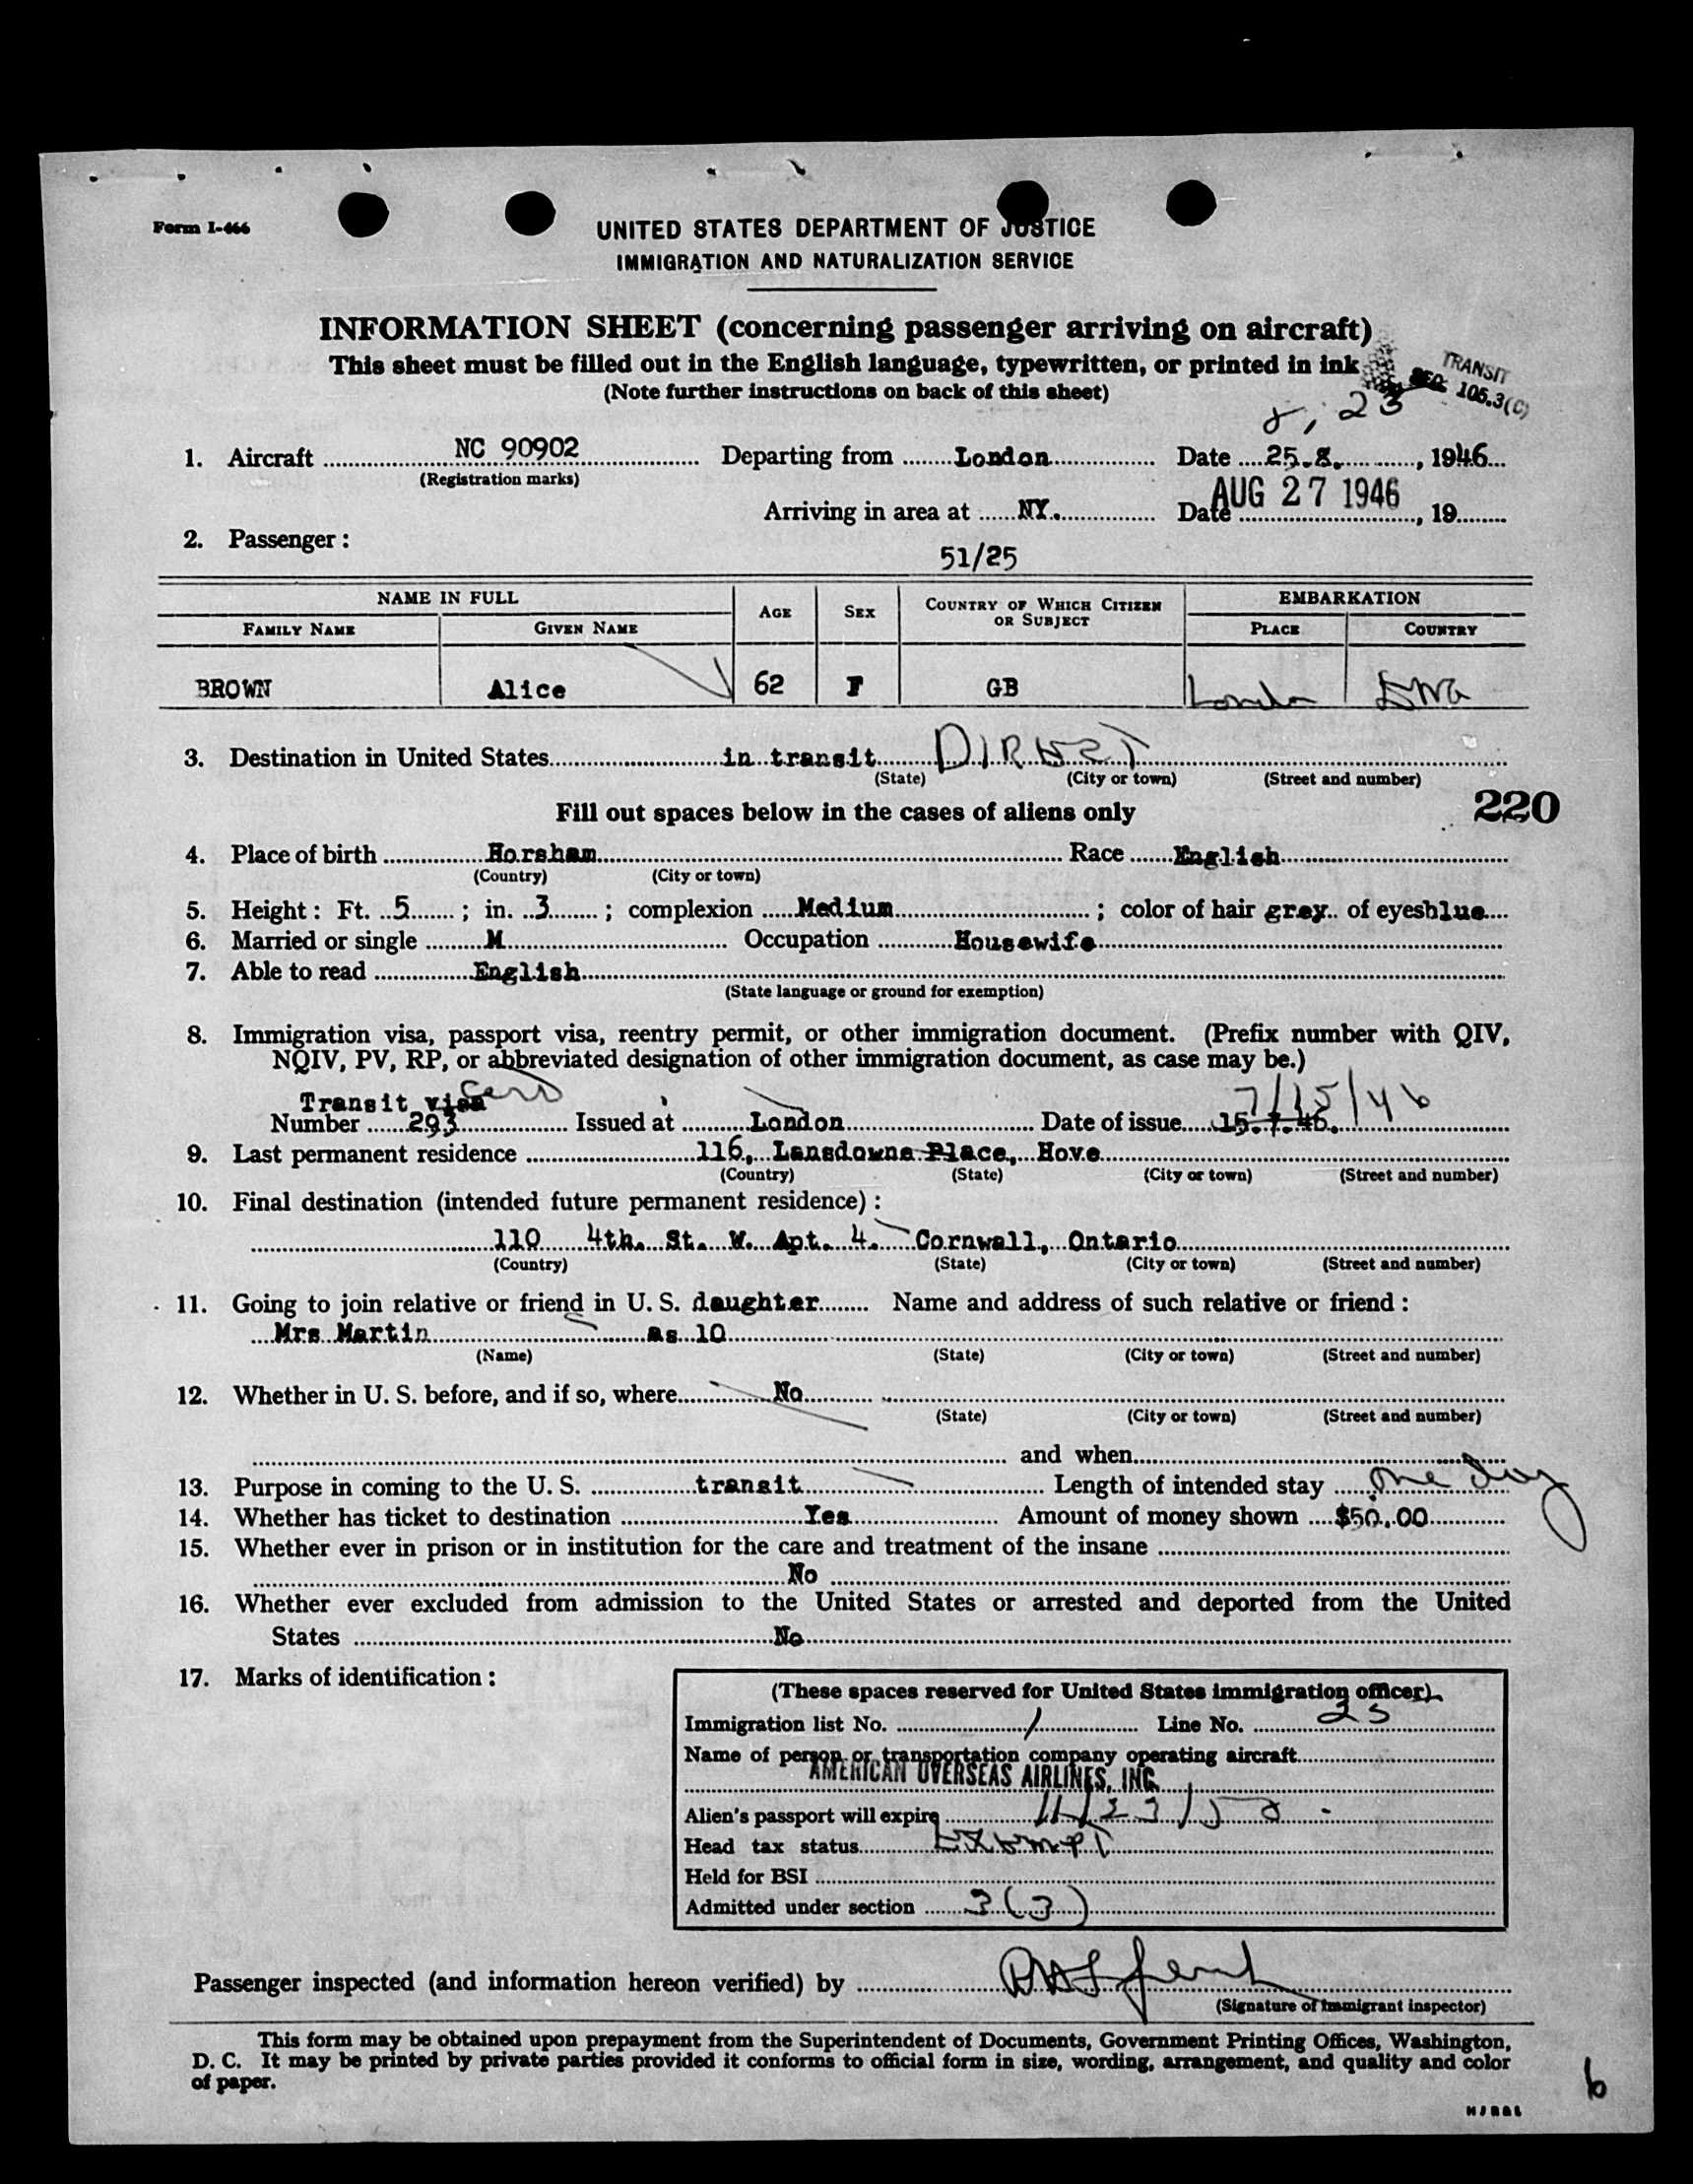 Form I-466
UNITED STATES DEPARTMENT OF JUSTICE
IMMIGRATION AND NATURALIZATION SERVICE
INFORMATION SHEET (concerning passenger arriving on aircraft)
This sheet must be filled out in the English language, typewritten, or printed in ink
(Note further instructions on back of this sheet)
TRANSIT
SEC. 105.3(C)
8, 23
1. Aircraft NC 90902 Departing from London Date 25.8. , 1946
(Registration marks)
Arriving in area at NY. Date AUG 27 1946 , 19
2. Passenger :
51/25
NAME IN FULL AGE SEX COUNTRY OF WHICH CITIZEN OR SUBJECT EMBARKATION
FAMILY NAME GIVEN NAME PLACE COUNTRY
BROWN Alice 62 F GB London Eng
3. Destination in United States in transit DIRECT
(State) (City or town) (Street and number)
Fill out spaces below in the cases of aliens only 220
4. Place of birth Horsham Race English
(Country) (City or town)
5. Height : Ft. 5 ; in. 3 ; complexion Medium ; color of hair grey of eyes blue
6. Married or single M Occupation Housewife
7. Able to read English
(State language or ground for exemption)
8. Immigration visa, passport visa, reentry permit, or other immigration document. (Prefix number with QIV,
NQIV, PV, RP, or abbreviated designation of other immigration document, as case may be.)
Transit visa Cert 7/15/46
Number 293 Issued at London Date of issue 15.7.46.
9. Last permanent residence 116, Lansdowne Place, Hove
(Country) (State) (City or town) (Street and number)
10. Final destination (intended future permanent residence) :
110 4th. St. W. Apt. 4. Cornwall, Ontario
(Country) (State) (City or town) (Street and number)
11. Going to join relative or friend in U. S. daughter Name and address of such relative or friend :
Mrs Martin as 10
(Name) (State) (City or town) (Street and number)
12. Whether in U. S. before, and if so, where No
(State) (City or town) (Street and number)
and when
13. Purpose in coming to the U. S. transit Length of intended stay One day
14. Whether has ticket to destination Yes Amount of money shown $50.00
15. Whether ever in prison or in institution for the care and treatment of the insane
No
16. Whether ever excluded from admission to the United States or arrested and deported from the United
States No
17. Marks of identification :
(These spaces reserved for United States immigration officer)
Immigration list No. 1 Line No. 25
Name of person or transportation company operating aircraft
AMERICAN OVERSEAS AIRLINES, INC.
Alien's passport will expire 11/23/50
Head tax status Exempt
Held for BSI
Admitted under section 3(3)
Passenger inspected (and information hereon verified) by
(Signature of immigrant inspector)
This form may be obtained upon prepayment from the Superintendent of Documents, Government Printing Offices, Washington,
D. C. It may be printed by private parties provided it conforms to official form in size, wording, arrangement, and quality and color
of paper.
6